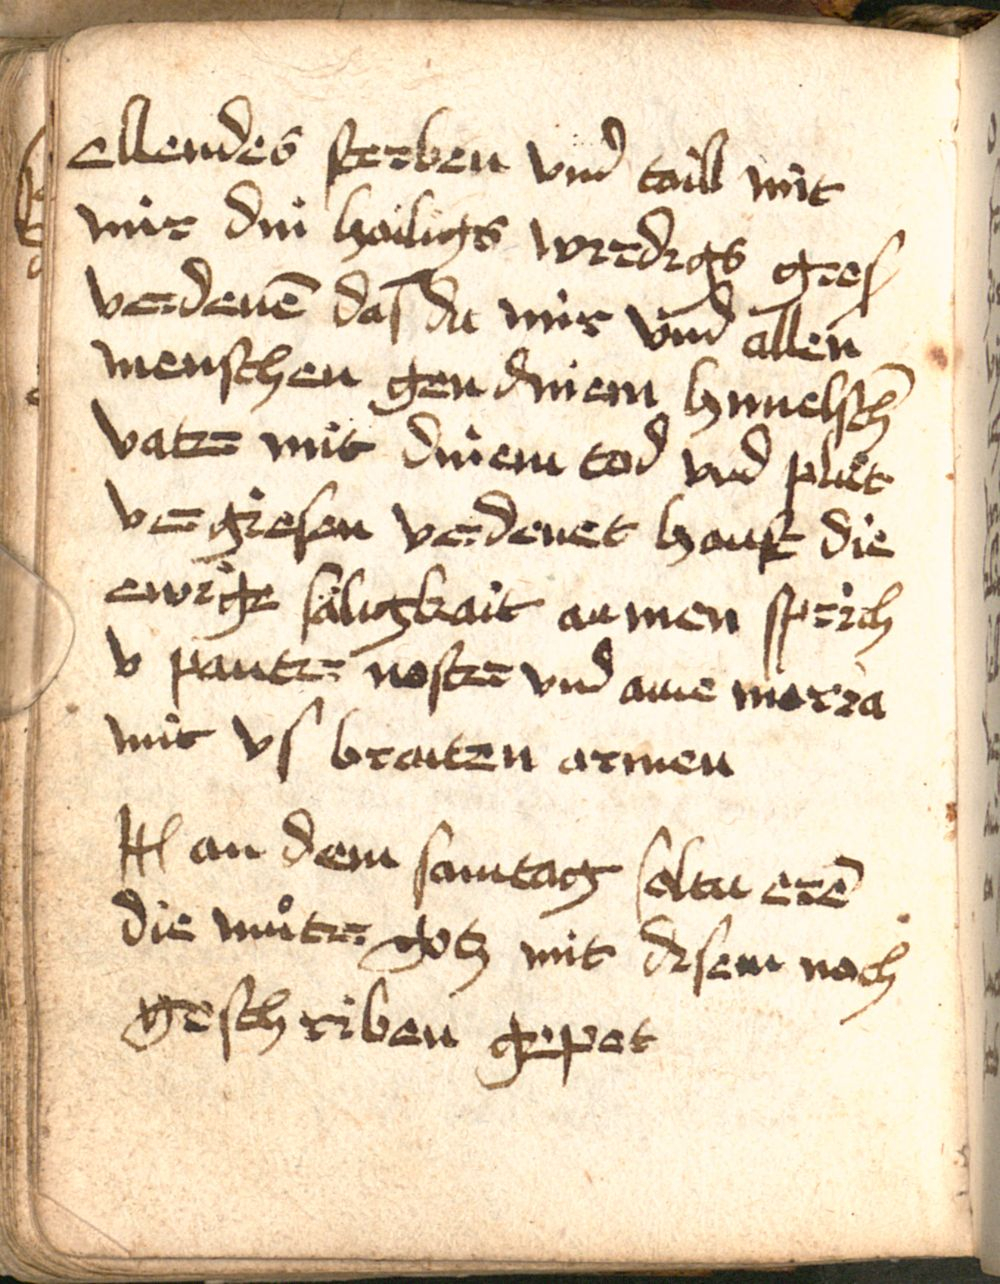 ellendes sterben vnd taill mit
mir din hailigs wirdigs gres
verdenē das du mir vnd allen
menschen gen dinem himelschē
vater mit dinem tod vnd pluͤt
vergiesen verdenet haust die
ewige säligkait aumen sprich
v pauter noster vnd aue maria
mit vs braiten armen
Itl an dem samtag soltu erē
die muͦter gotz mit disem nach
geschriben gepet